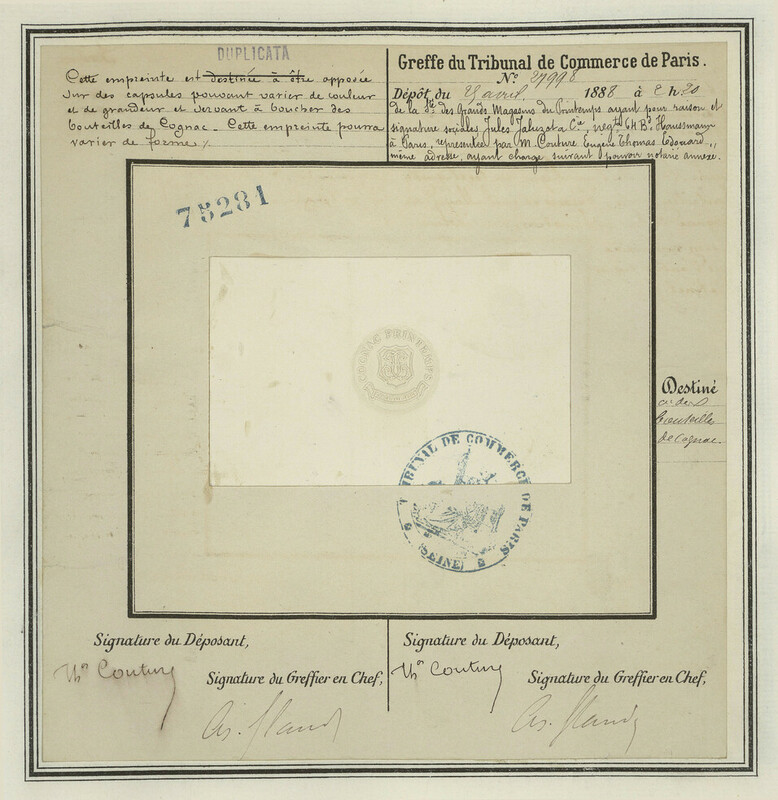 DUPLICATA
Cette empreinte est destinée à être apposée
sur des capsules pouvant varier de couleur
et de grandeur et servant à boucher des
bouteilles de Cognac. Cette empreinte pourra
varier de forme ./.
Greffe du Tribunal de Commerce de Paris.
N° 27998
Dépôt du avril 1888 à 2 h. 20
de la Sté des Grands Magasins du Printemps ayant pour raison et
signature sociales Jules Jaluzot & Cie, négts 64 Bd Haussmann
à Paris, représentée par M. Couture Eugène Thomas Edouard,
même adresse, ayant charge suivant pouvoir notarié annexé.
75281
COGNAC PRINTEMPS
TRIBUNAL DE COMMERCE DE PARIS
(SEINE)
Destiné
à des
bouteilles
de Cognac.
Signature du Déposant,
Th Couture
Signature du Greffier en Chef,
Signature du Déposant,
Th Couture
Signature du Greffier en Chef,